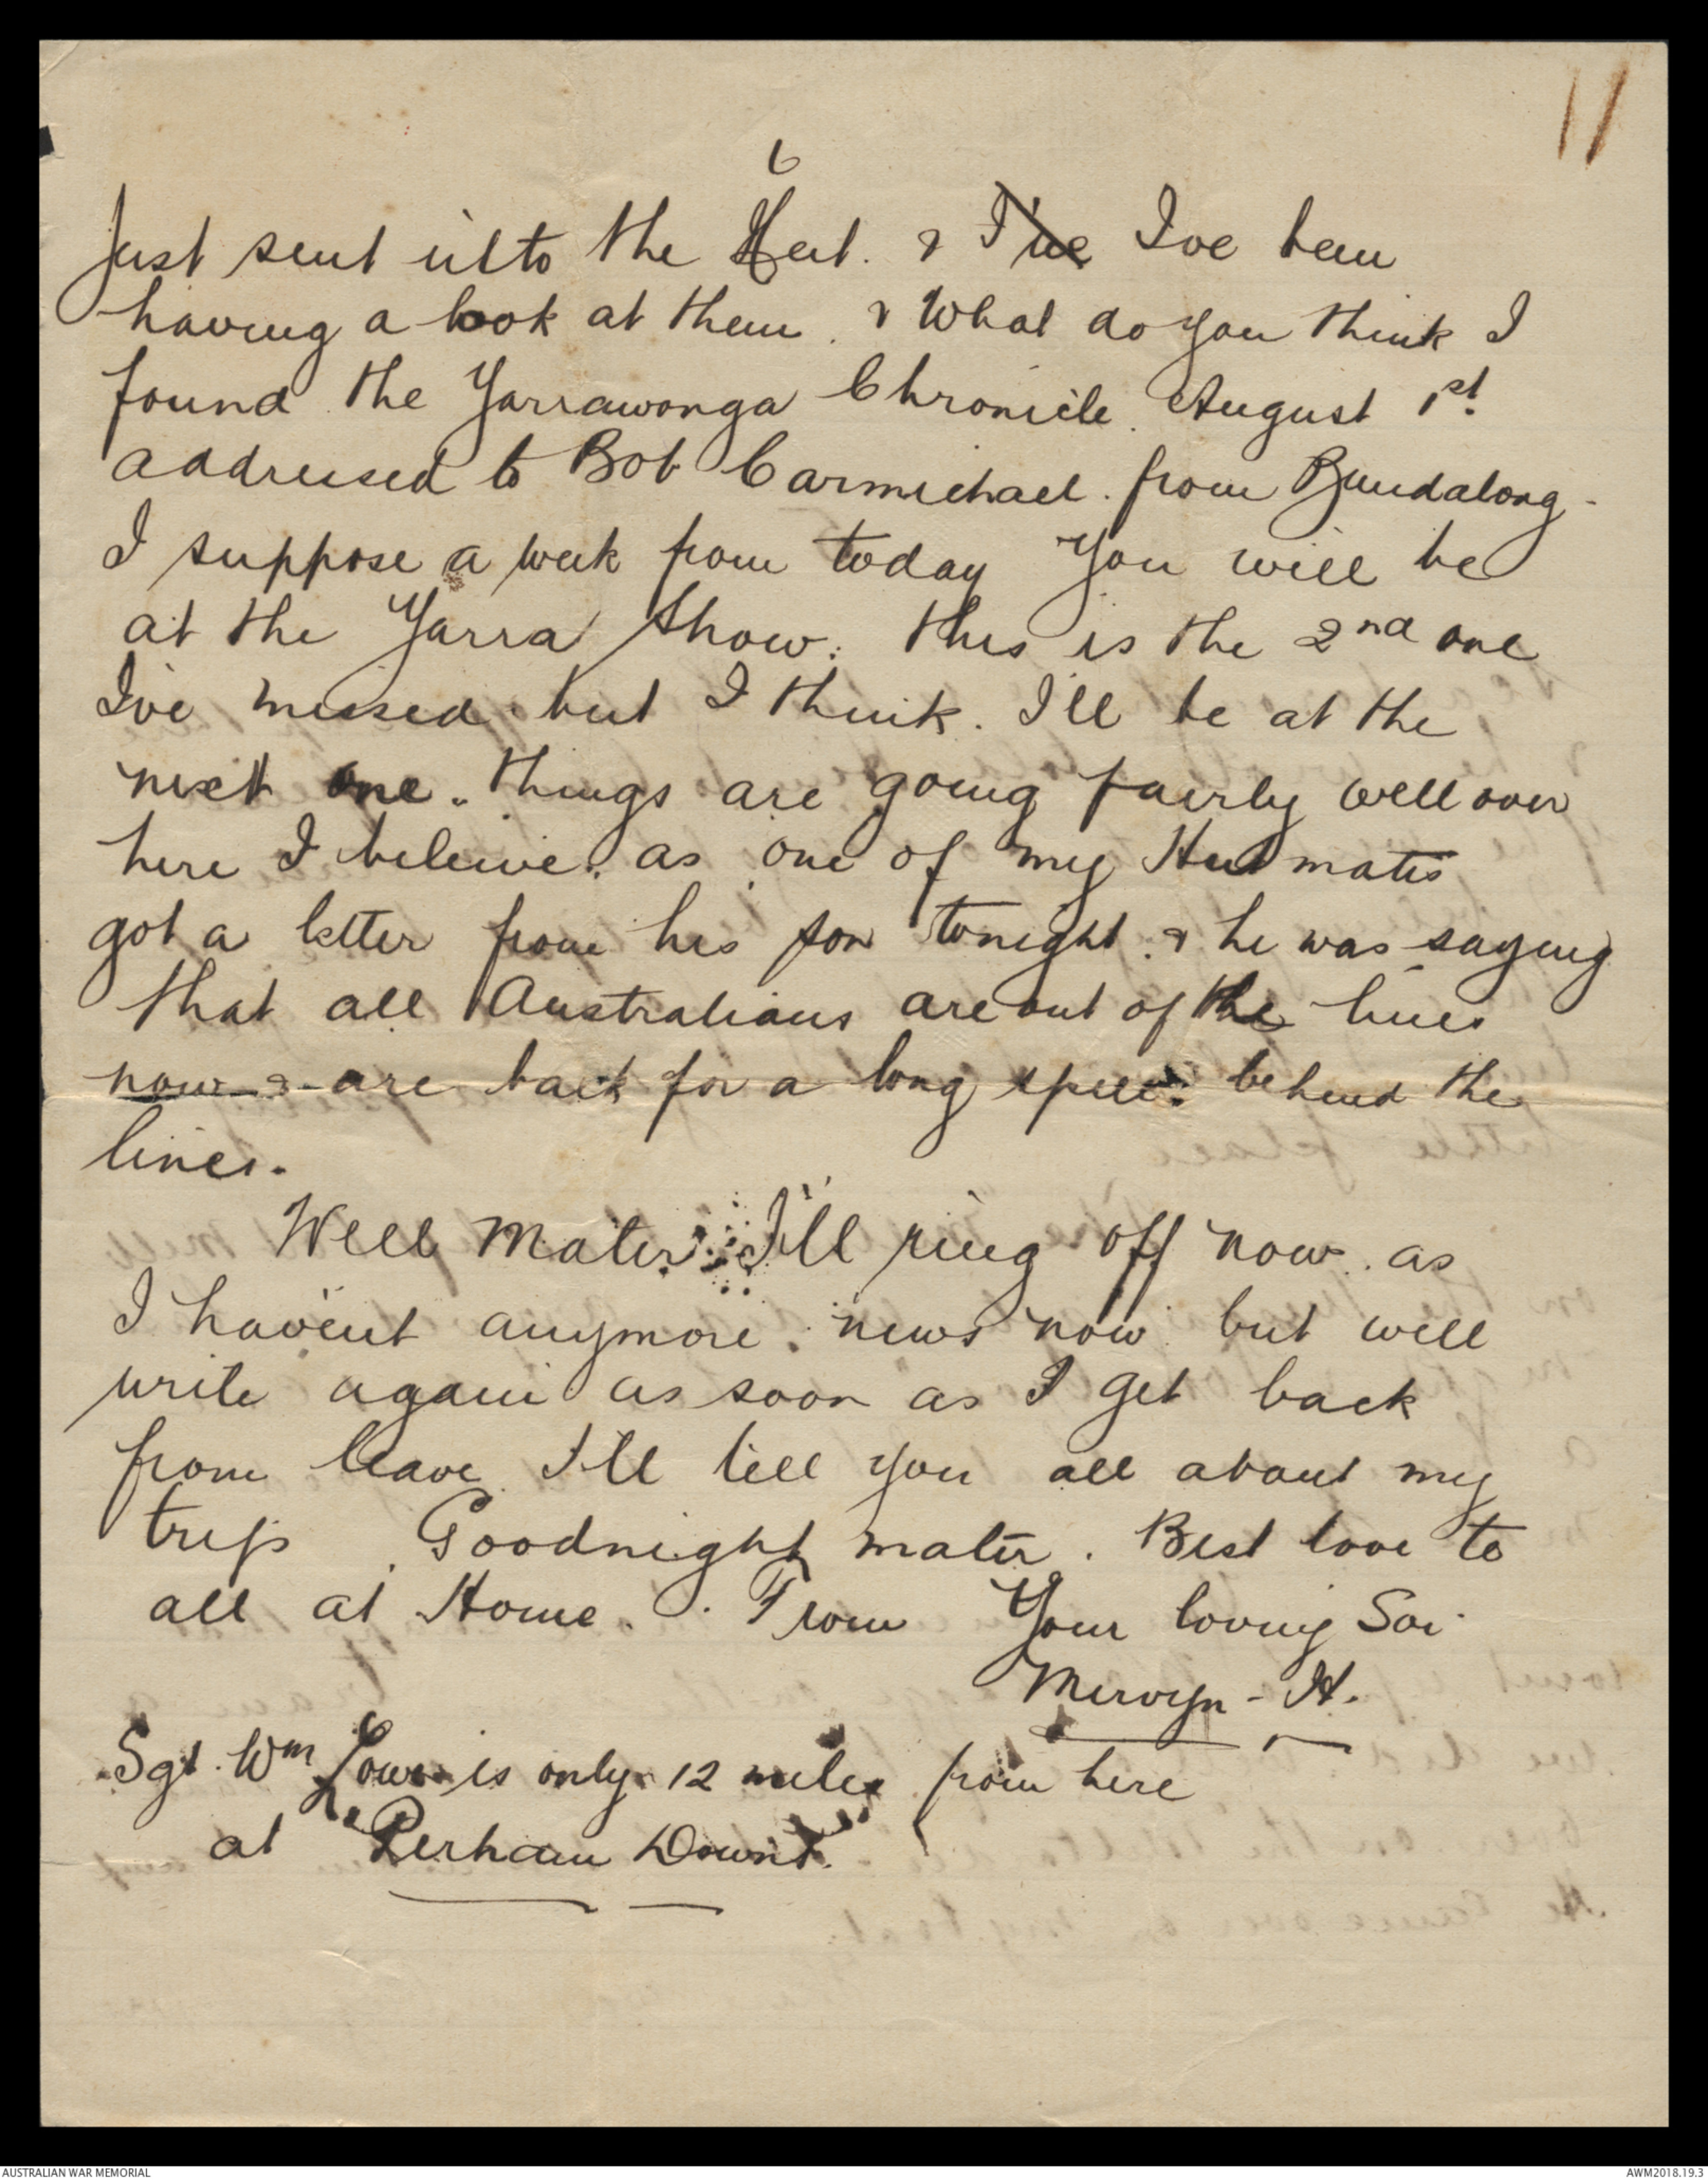 11
6
Just sent into the Hut. & I've I've been
having a look at them. & What do you think I
found the Yarrawonga Chronicle. August 1st.
addressed to Bob Carmichael. from Bundalong.
I suppose a week from today you will be
at the Yarra Show. this is the 2nd one
I've missed but I think. I'll be at the
next one. things are going fairly well over
here I beleive. as one of my Hut mates
got a letter from his son tonight. & he was saying
that all Australians are out of the lines
now & are back for a long spell. behind the
lines.
Well Mater I'll ring off now. as
I have'nt anymore. news now but will
write again as soon as I get back
from leave I'll tell you all about my
trip. Goodnight mater. Best love to
all at Home. From Your loving Son
Mervyn - H.
Sgt. Wm Lowe is only 12 miles from here
at "Perham Downs".
AUSTRALIAN WAR MEMORIAL
AWM2018.19.3